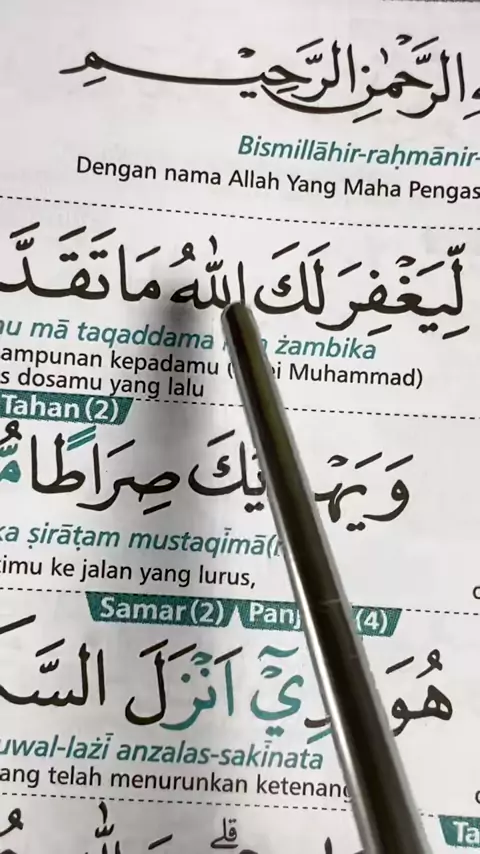 الرَّحْمٰنِ الرَّحِيْمِ
Bismillāhir-raḥmānir-
Dengan nama Allah Yang Maha Pengas
لِّيَغْفِرَ لَكَ اللّٰهُ مَا تَقَدَّ
u mā taqaddama żambika
ampunan kepadamu ( i Muhammad)
s dosamu yang lalu
Tahan (2)
وَيَهْ يَكَ صِرَاطًا مُّ
ka ṣirāṭam mustaqīmā(
imu ke jalan yang lurus,
Samar (2) Panj (4)
هُوَ يْٓ اَنْزَلَ السَّ
uwal-lażī anzalas-sakīnata
ang telah menurunkan ketenang
قلے
Ta